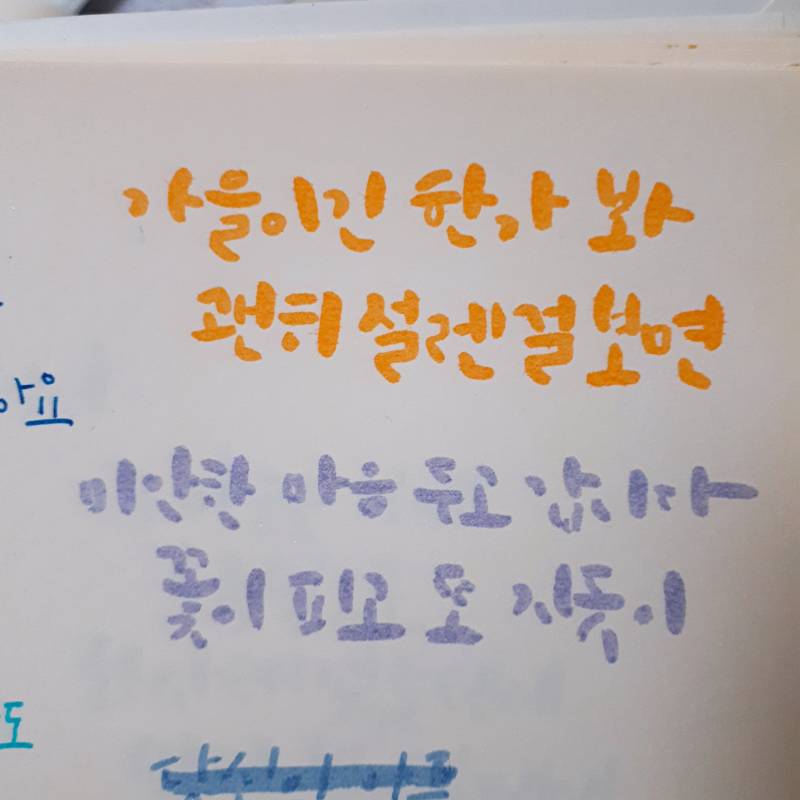 가을이긴 한가 봐
괜히 설렌걸 보면
아요
미안한 마음 두고 갑시다
꽃이 피고 또 지듯이
도